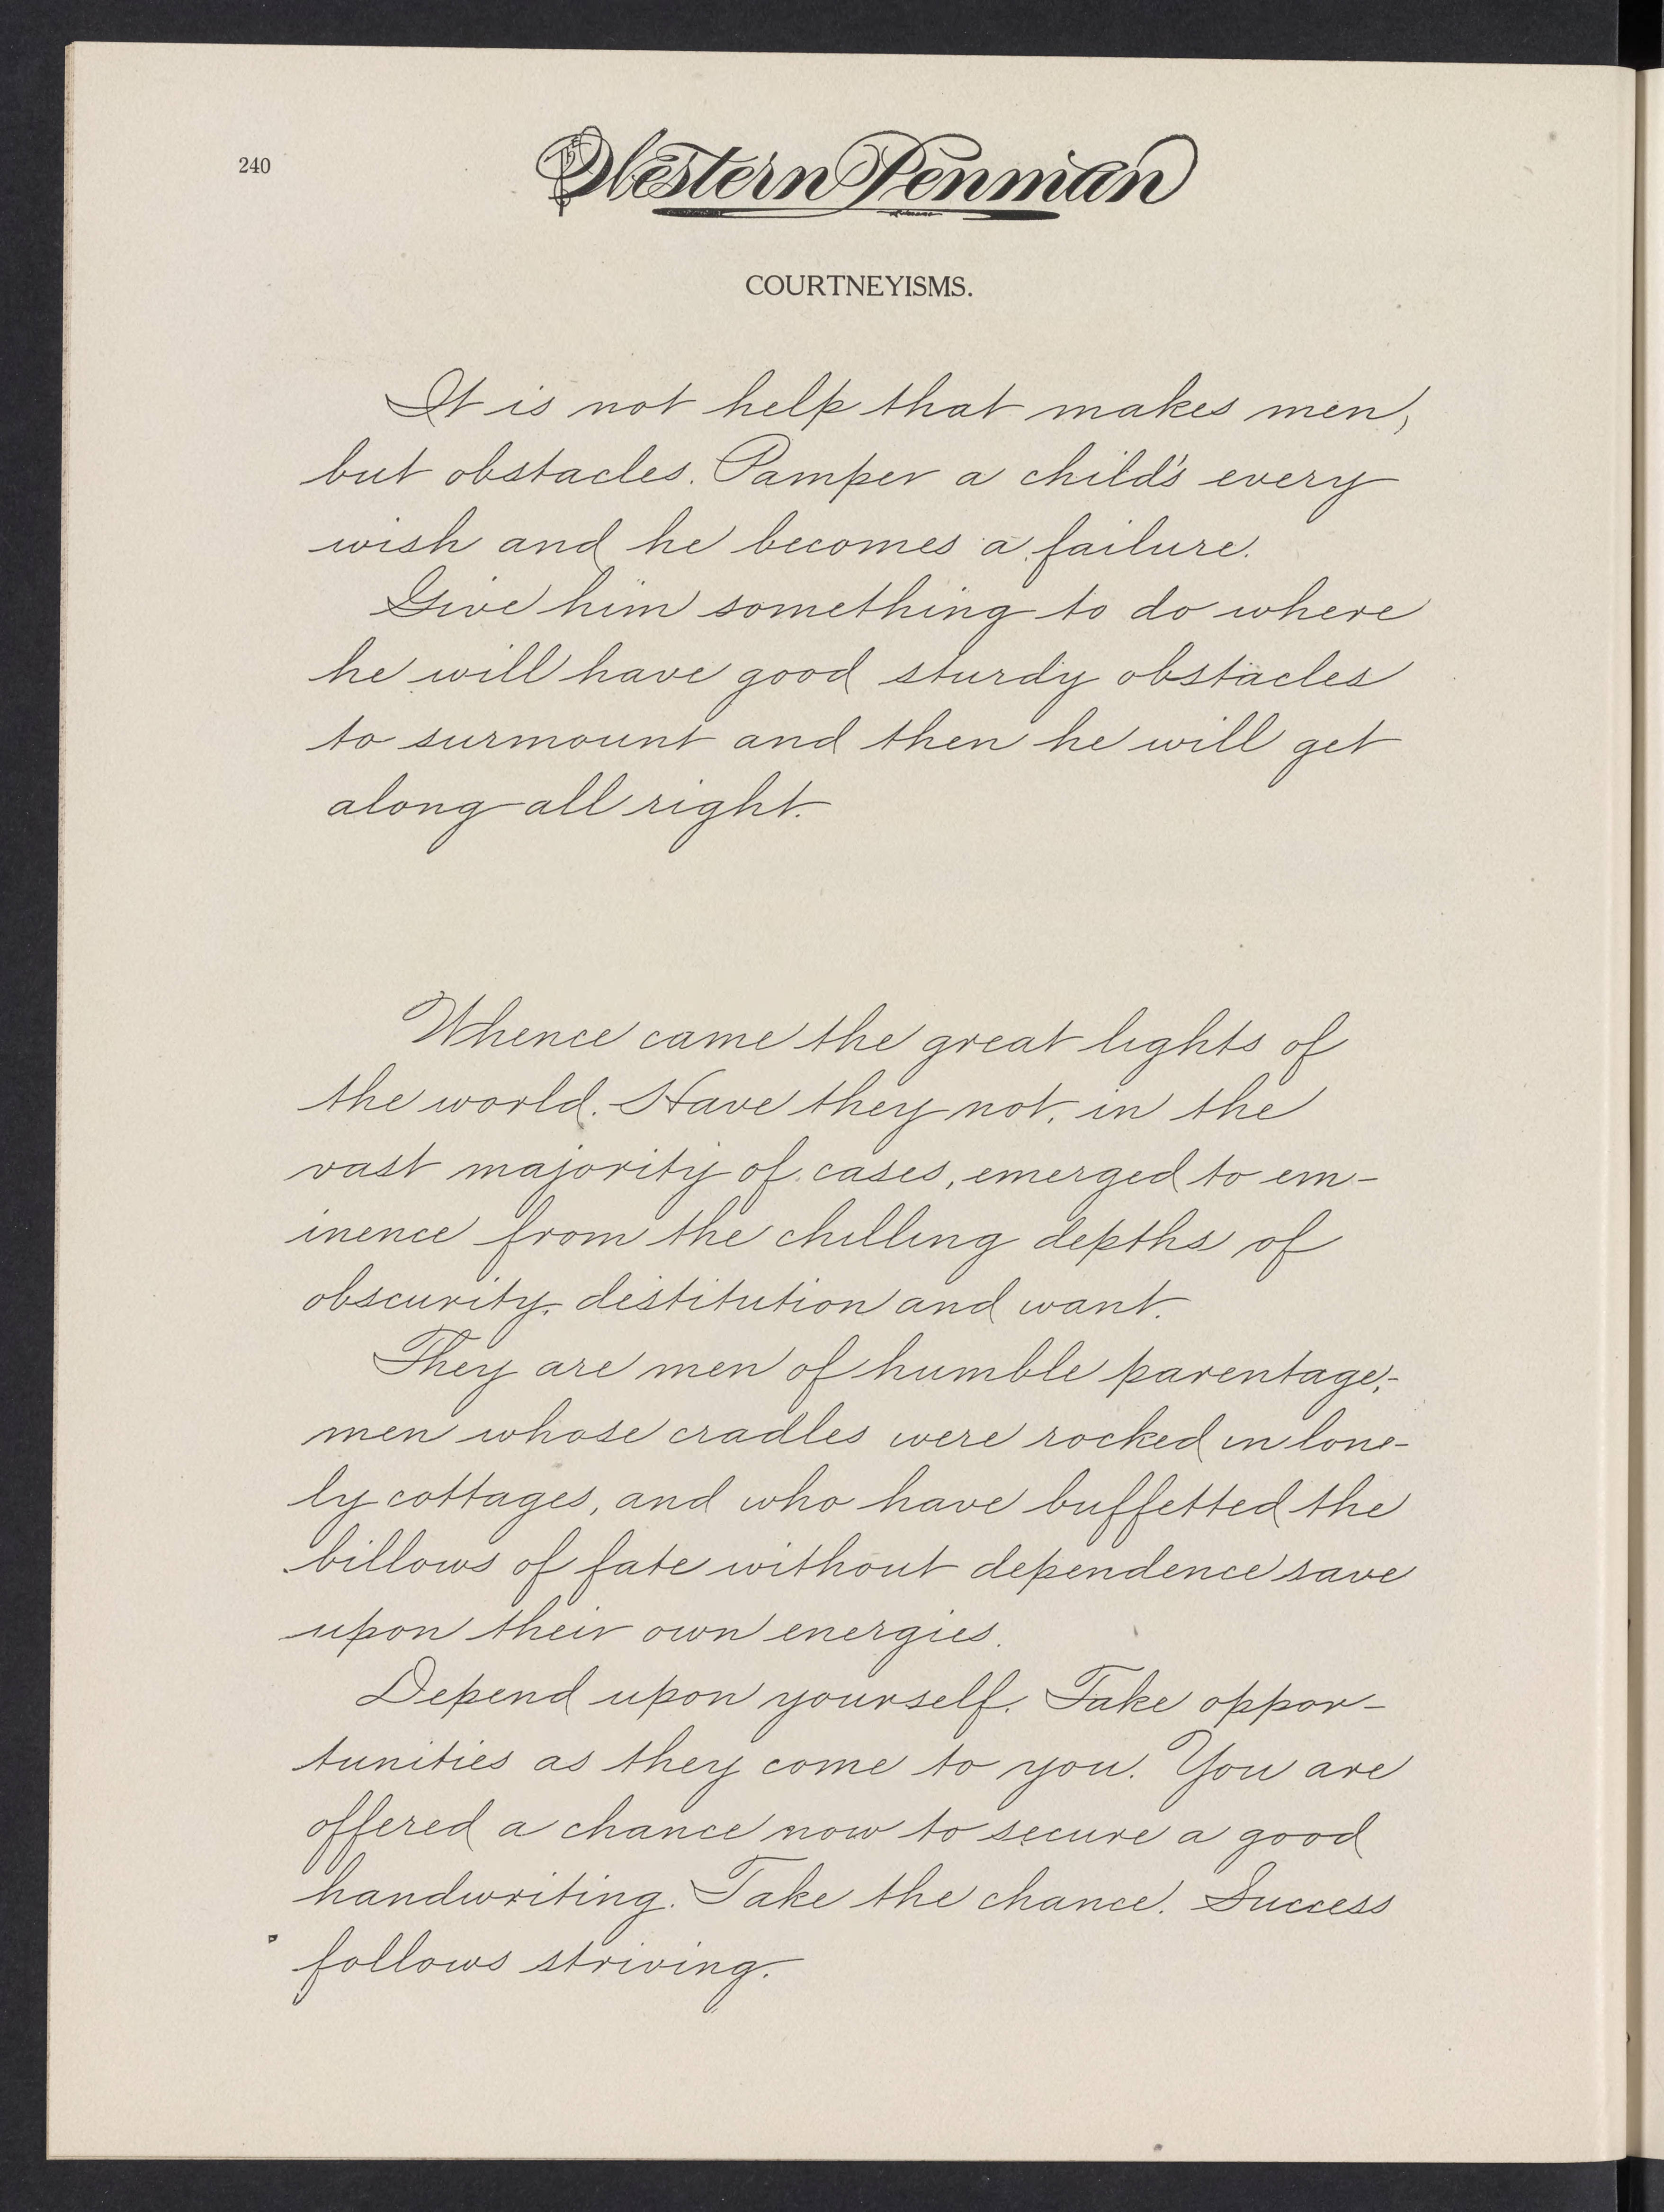 240
Western Penman
COURTNEYISMS.
It is not help that makes men,
but obstacles. Pamper a child's every
wish and he becomes a failure.
Give him something to do where
he will have good sturdy obstacles
to surmount and then he will get
along all right.
Whence came the great lights of
the world. Have they not, in the
vast majority of cases, emerged to em-
inence from the chilling depths of
obscurity, destitution and want.
They are men of humble parentage,-
men whose cradles were rocked in lone-
ly cottages, and who have buffetted the
billows of fate without dependence save
upon their own energies.
Depend upon yourself. Take oppor-
tunities as they come to you. You are
offered a chance now to secure a good
handwriting. Take the chance. Success
follows striving.